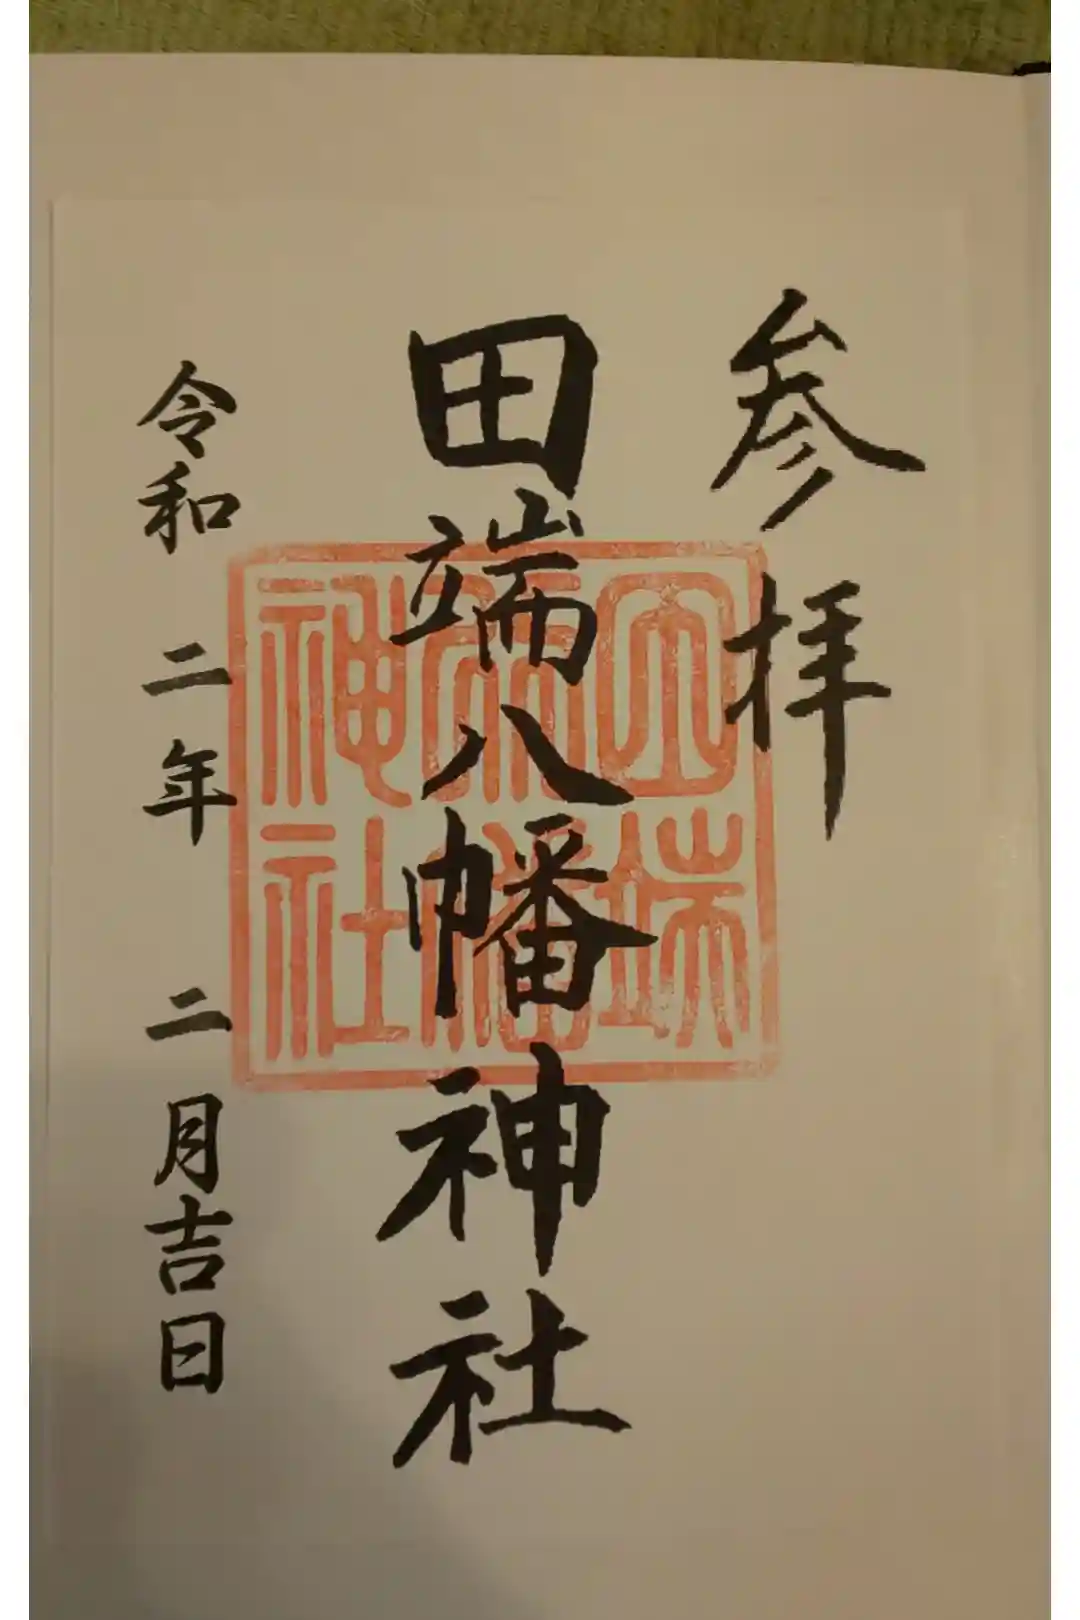 参拝
田端八幡神社
令和二年二月吉日
田端八幡神社